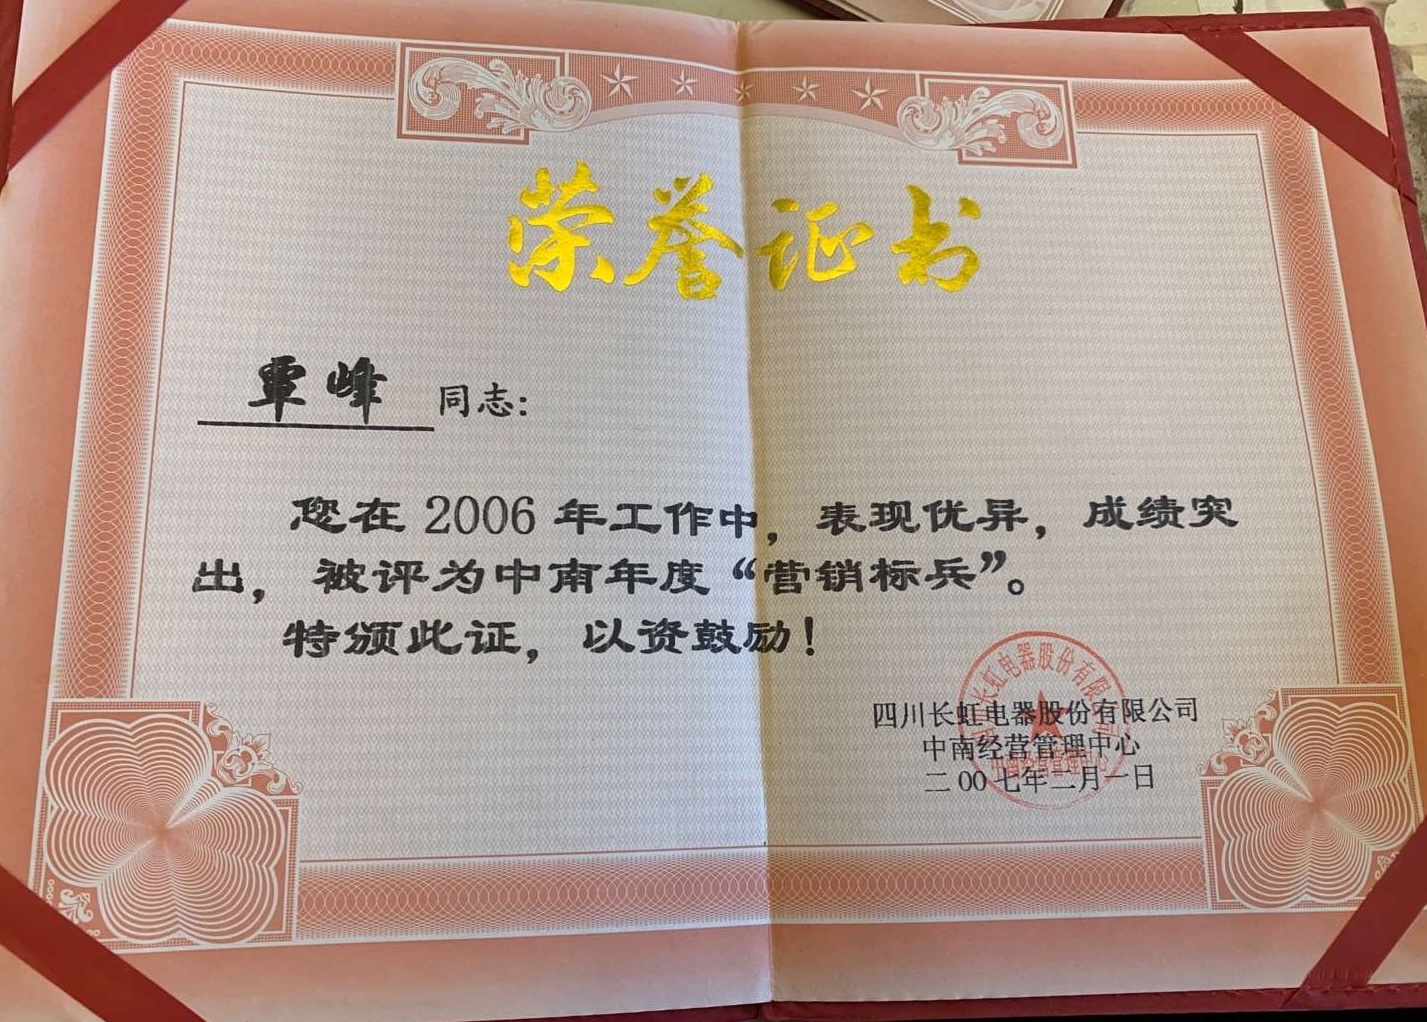 荣誉证书
覃峰 同志:
您在 2006 年工作中，表现优异，成绩突
出，被评为中南年度“营销标兵”。
特颁此证，以资鼓励！
四川长虹电器股份有限公司
中南经营管理中心
二00七年二月一日
四川长虹电器股份有限公司
中南经营管理中心